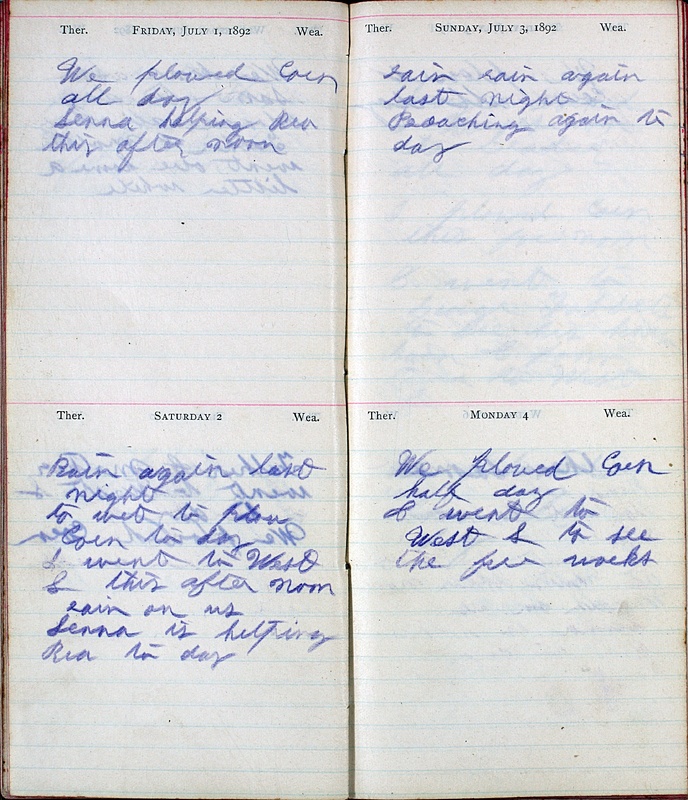 Ther. FRIDAY, JULY 1, 1892 Wea.
We plowed Coen
all day
Senna helping Rea
this after noon
Ther. SATURDAY 2 Wea.
Rain again last
night
to wet to plow
Coen to day
I went to West
L this after noon
rain on us
Senna is helping
Rea to day
Ther. SUNDAY, JULY 3, 1892 Wea.
rain rain again
last night
Preaching again to
day
Ther. MONDAY 4 Wea.
We plowed Coen
half day
I went to
West L to see
the fire works